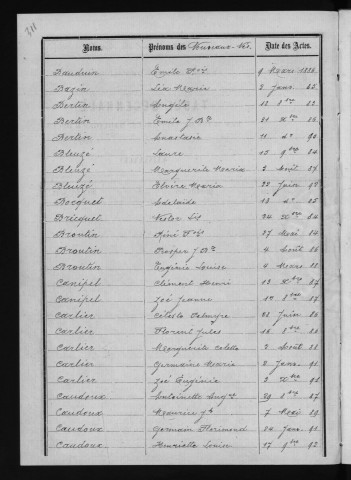 311
Noms. Prénoms des Nouveaux-Nés. Date des Actes.
Baudrin Emile 9 Mars 1886
Bazin Léa Maria 2 Janv. 83
Bertin Angèle 12 8bre 82
Bertin Emile J Bte 21 Xbre 86
Bertin Anastasie 11 do 90
Bleuzé Laure 15 9bre 84
Bleuzé Marguerite Maria 2 Août 87
Bleuzé Elvire Maria 22 Juin 92
Bocquet Adelaïde 13 do 85
Bricquet Victor Ls 24 Xbre 84
Broutin Réné 27 Mai 84
Broutin Prosper J Bte 4 Août 86
Broutin Eugénie Louise 4 Mars 88
Canipel Clément Henri 13 Xbre 87
Canipel Zoé Jeanne 10 87
Carlier Céleste Palmyre 28 Juin 86
Carlier Florent Jules 16 8bre 88
Carlier Marguerite Colette 2 Août 88
Carlier Germaine Maria 2 Janv. 91
Carlier Zoé Eugénie 2 Xbre 91
Caudoux Antoinette 29 87
Caudoux Maurice 7 Mai 89
Caudoux Germain Florimond 24 Janv. 91
Caudoux Henriette 17 9bre 92